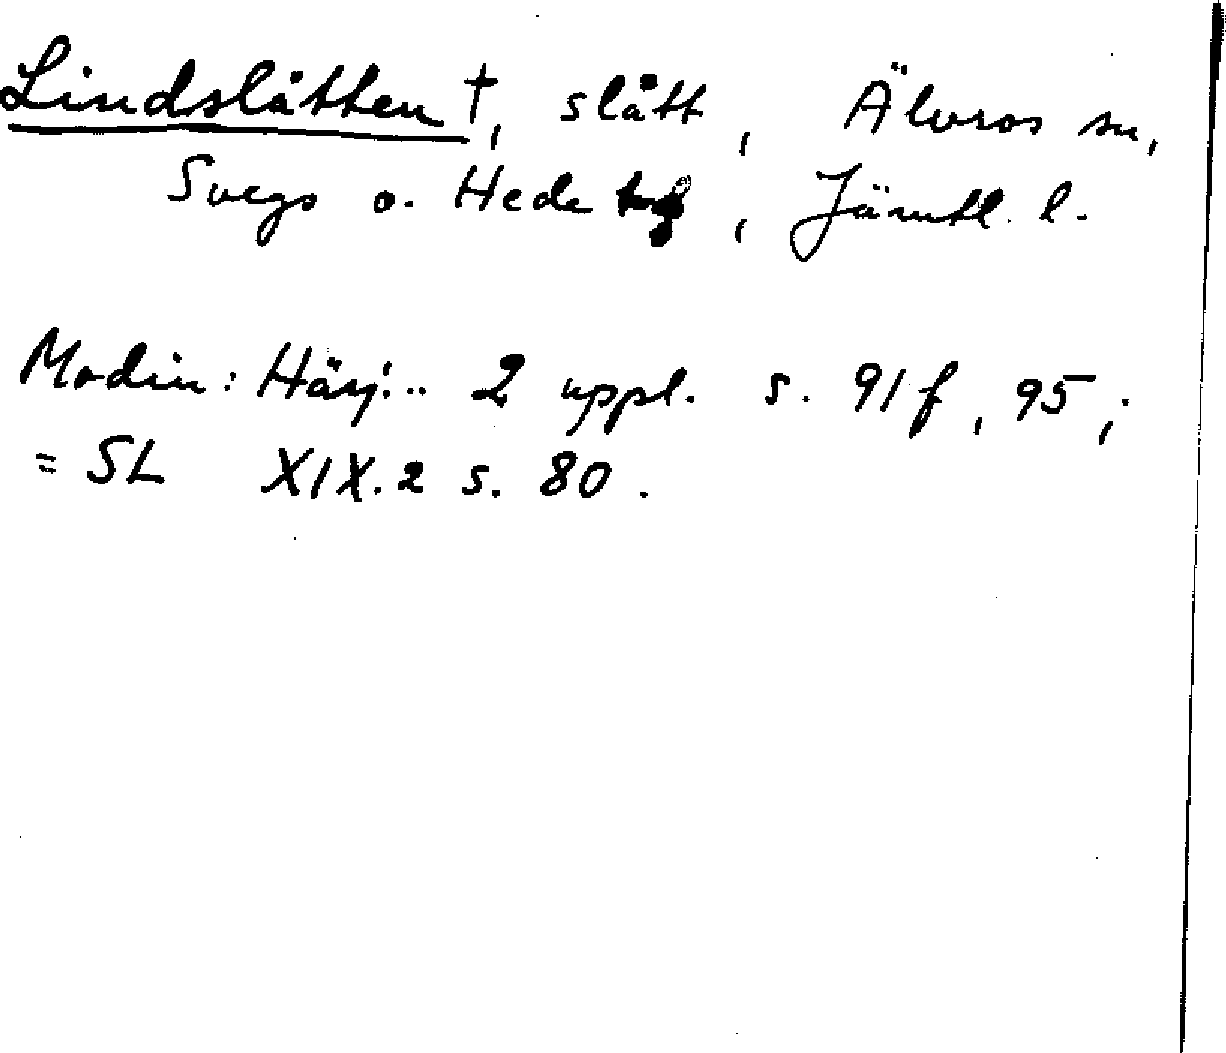 Lindslåtten †, slått, Älvros sn,
Svegs o. Hede, Jämtl. l.
Modin: Härj... 2 uppl. s. 91 f, 95,;
= SL XIX.2 s. 80.